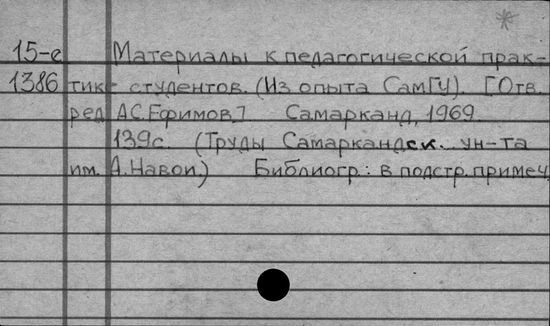 *
15-е Материалы к педагогической прак-
1386 тике студентов. (Из опыта СамГУ). [Отв.
ред. А.С.Ефимов.] Самарканд, 1969.
139с. (Труды Самаркандск. ун-та
им. А.Навои.) Библиогр.: в подстр. примеч.